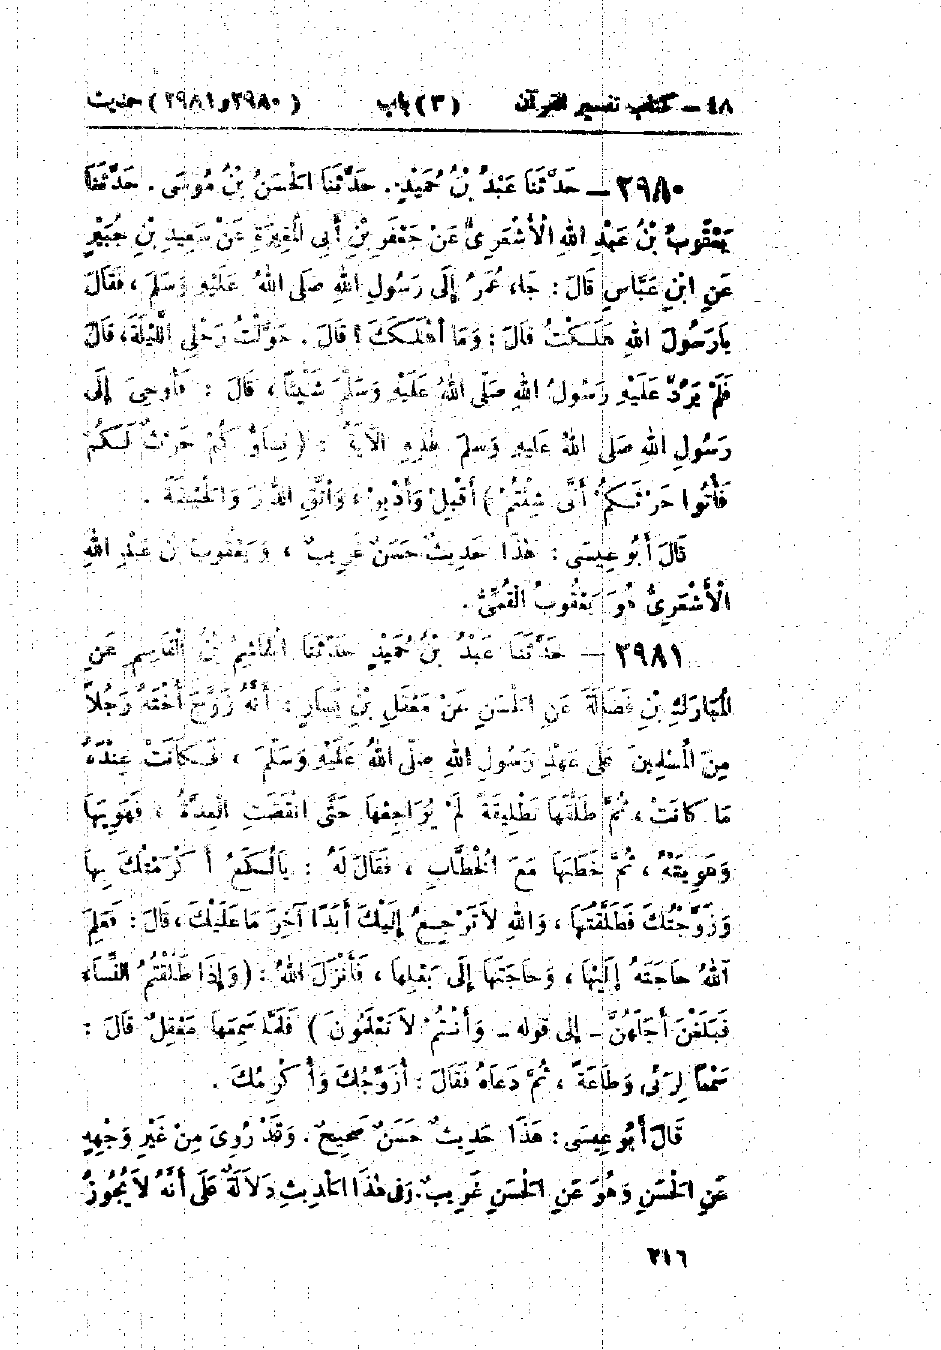 ٤٨ – كتاب تفسير القرآن (٣) باب (٢٩٨٠ و ٢٩٨١) حديث
٢٩٨٠ – حَدَّثَنَا عَبْدُ بْنُ حُمَيْدٍ. حَدَّثَنَا الْحَسَنُ بْنُ مُوسَى. حَدَّثَنَا
يَعْقُوبُ بْنُ عَبْدِ اللهِ الْأَشْعَرِىُّ عَنْ جَعْفَرِ بْنِ أَبِى الْمُغِيرَةِ عَنْ سَعِيدِ بْنِ جُبَيْرٍ
عَنِ ابْنِ عَبَّاسٍ قَالَ : جَاءَ عُمَرُ إِلَى رَسُولِ اللهِ صَلَّى اللهُ عَلَيْهِ وَسَلَّمَ ، فَقَالَ
يَارَسُولَ اللهِ هَلَكْتُ قَالَ : وَمَا أَهْلَكَكَ ؟ قَالَ . حَوَّلْتُ رَحْلِى اللَّيْلَةَ، قَالَ
فَلَمْ يَرُدَّ عَلَيْهِ رَسُولُ اللهِ صَلَّى اللهُ عَلَيْهِ وَسَلَّمَ شَيْئًا ، قَالَ : فَأُوحِىَ إِلَى
رَسُولِ اللهِ صَلَّى اللهُ عَلَيْهِ وَسَلَّمَ هَذِهِ الْآيَةُ : ( نِسَاؤُكُمْ حَرْثٌ لَكُمْ
فَأْتُوا حَرْثَكُمْ أَنَّى شِئْتُمْ ) أَقْبِلْ وَأَدْبِرْ ، وَاتَّقِ الدُّبُرَ وَالْحَيْضَةَ .
قَالَ أَبُو عِيسَى : هَذَا حَدِيثٌ حَسَنٌ غَرِيبٌ ، وَيَعْقُوبُ بْنُ عَبْدِ اللهِ
الْأَشْعَرِىُّ هُوَ يَعْقُوبُ الْقُمِّىُّ .
٢٩٨١ – حَدَّثَنَا عَبْدُ بْنُ حُمَيْدٍ حَدَّثَنَا الْهَاشِمُ بْنُ الْقَاسِمِ عَنِ
الْمُبَارَكِ بْنِ فَضَالَةَ عَنِ الْحَسَنِ عَنْ مَعْقَلِ بْنِ يَسَارٍ : أَنَّهُ زَوَّجَ أُخْتَهُ رَجُلاً
مِنَ الْمُسْلِمِينَ عَلَى عَهْدِ رَسُولِ اللهِ صَلَّى اللهُ عَلَيْهِ وَسَلَّمَ ، فَكَانَتْ عِنْدَهُ
مَا كَانَتْ ، ثُمَّ طَلَّقَهَا تَطْلِيقَةً لَمْ يُرَاجِعْهَا حَتَّى انْقَضَتِ الْعِدَّةُ ، فَهَوِيَهَا
وَهَوِيَتْهُ ، ثُمَّ خَطَبَهَا مَعَ الْخُطَّابِ ، فَقَالَ لَهُ : يَالُكَعُ أَكْرَمْتُكَ بِهَا
وَزَوَّجْتُكَ فَطَلَّقْتَهَا ، وَاللهِ لاَ تَرْجِعُ إِلَيْكَ أَبَدًا آخِرَ مَا عَلَيْكَ ، قَالَ : فَعَلِمَ
اللهُ حَاجَتَهُ إِلَيْهَا ، وَحَاجَتَهَا إِلَى بَعْلِهَا ، فَأَنْزَلَ اللهُ : ( وَإِذَا طَلَّقْتُمُ النِّسَاءَ
فَبَلَغْنَ أَجَلَهُنَّ – إلى قوله – وَأَنْتُمْ لاَ تَعْلَمُونَ ) فَلَمَّا سَمِعَهَا مَعْقِلٌ قَالَ :
سَمْعًا لِرَبِّى وَطَاعَةً ، ثُمَّ دَعَاهُ فَقَالَ : أُزَوِّجُكَ وَأُكْرِمُكَ .
قَالَ أَبُو عِيسَى : هَذَا حَدِيثٌ حَسَنٌ صَحِيحٌ . وَقَدْ رُوِىَ مِنْ غَيْرِ وَجْهِهِ
عَنِ الْحَسَنِ وَهُوَ عَنِ الْحَسَنِ غَرِيبٌ. وَفى هَذَا الْحَدِيثِ دَلاَلَةٌ عَلَى أَنَّهُ لاَ يَجُوزُ
٢١٦